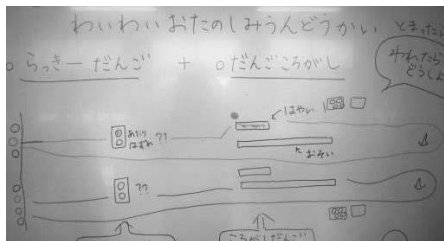 わいわいおたのしみうんどうかい
とまったら
われたら
どうしよ
○らっきーだんご + ○だんごころがし
はやい
あたり
はずれ ??
おそい
??
ころがしだんご